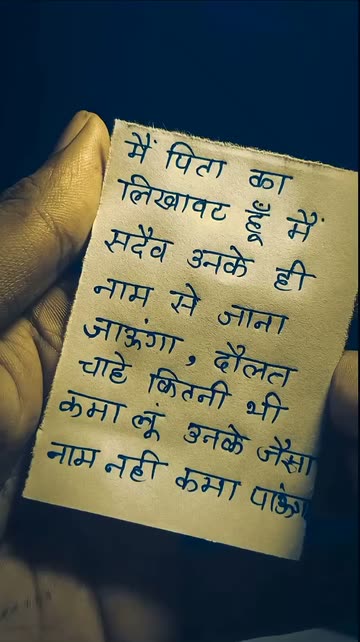 मैं पिता का
लिखावट हूँ मैं
सदैव उनके ही
नाम से जाना
जाऊंगा, दौलत
चाहे कितनी भी
कमा लूं उनके जैसा
नाम नही कमा पाऊंगा